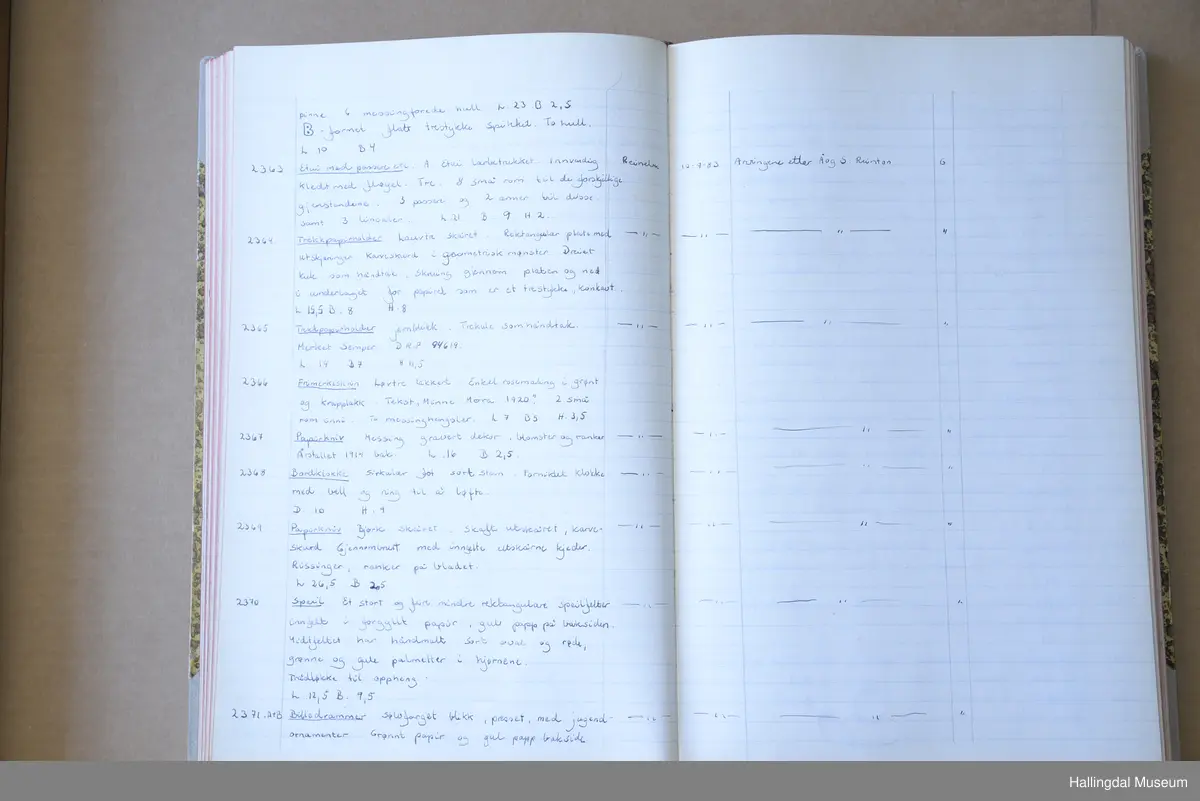 pinne 6 messingforede hull L. 23 B 2,5
B - formet flatt trestykke spikket. To hull.
L 10 B 4
2363 Etui med passere etc. A Etui lærtrukket innvendig Reinelm 12-9-83 Arvingene etter Å og S. Reinton G
kledt med fløyel. Tre. 8 små rom til de forskjellige
gjenstandene. 3 passere og 2 armer til disse
samt 3 linealer. L. 21 B 9 H 2.
2364 Trekkpapirholder Lauvtre skåret. Rektangulær plate med — " — — " — — " — "
utskjæringer karveskurd i geometrisk mønster Dreiet
kule som håndtak, skruing gjennom platen og ned
i underlaget for papiret som er et trestykke, konkavt.
L 15,5 B. 8 H. 8
2365 Trekkpapirholder jernblikk. Trekule som håndtak. — " — — " — — " — "
Merket Semper D.R.P 94614.
L 14 B 7 H 4,5
2366 Frimerkeskrin Løvtre lakkert Enkel rosemaling i grønt
og krapplakk. Tekst "Minne Morra 1920". 2 små
rom inni. To messinghengsler. L 7 B 5 H. 3,5
2367 Papirkniv Messing gravert dekor, blomster og ranker — " — — " — — " — "
Årstallet 1914 bak. L. 16 B 2,5.
2368 Bordklokke Sirkulær fot sort stein. Formidet klokke — " — — " — — " —
med bell og ring til å løfte.
D. 10 H. 9
2369 Papirkniv Bjørk skåret. Skaft utskåret, karve- — " — — " — — " — "
skurd Gjennombrutt med innfelte utskårne kjeder.
Russinger, ranker på bladet.
L 26,5 B 2,5
2370 Speil Et stort og fire mindre rektangulære speilfelter — " — — " — — " — "
innfelt i forgyllt papir, gul papp på baksiden.
Midtfeltet har håndmalt sort oval og røde,
grønne og gule palmetter i hjørnene.
Trådløkke til oppheng.
L 12,5 B. 9,5
2371. A+B Billedrammer sølvfarget blikk, presset, med jugend- — " — — " — — " — "
ornamenter Grønt papir og gul papp bakside
Hallingdal Museum